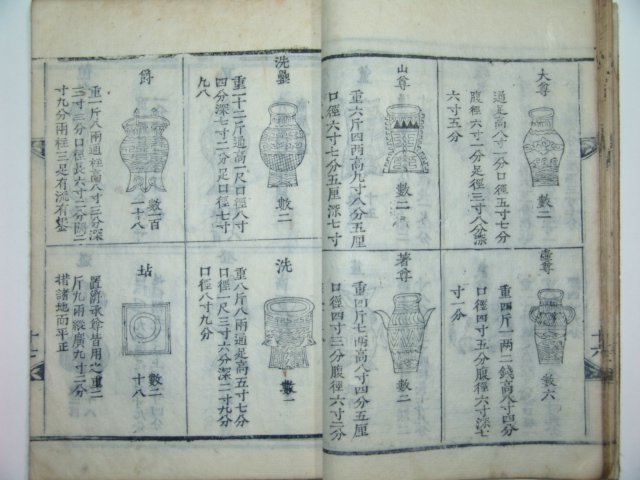 大尊
數二
通足高八寸一分口徑五寸七分
腹徑六寸一分足徑三寸八分深
六寸五分
山尊
數二
重六斤四兩高九寸八分五厘
口徑六寸七分五厘深七寸
壺尊
數六
重四斤一兩二錢高八寸四分
口徑四寸五分腹徑六寸深七
寸一分
著尊
數二
重四斤七兩高八寸四分五厘
口徑四寸三分腹徑六寸二分
洗罍
數二
重十二斤通高一尺口徑八寸
四分深七寸二分足口徑七寸
九八
爵
數一百
一十八
重一斤八兩通柱高八寸二分深
三寸三分口徑長六寸二分闊二
寸九分兩柱三足有流有鋬
洗
數二
重八斤八兩通足高五寸七分
口徑一尺三寸六分深二寸九分
口徑八寸九分
坫
數二
十八
置爵承尊皆用之重二
斤九兩縱廣九寸二分
措諸地而平正